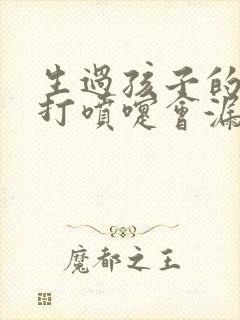 生過孩子的
打噴嚏會漏
魔都之王